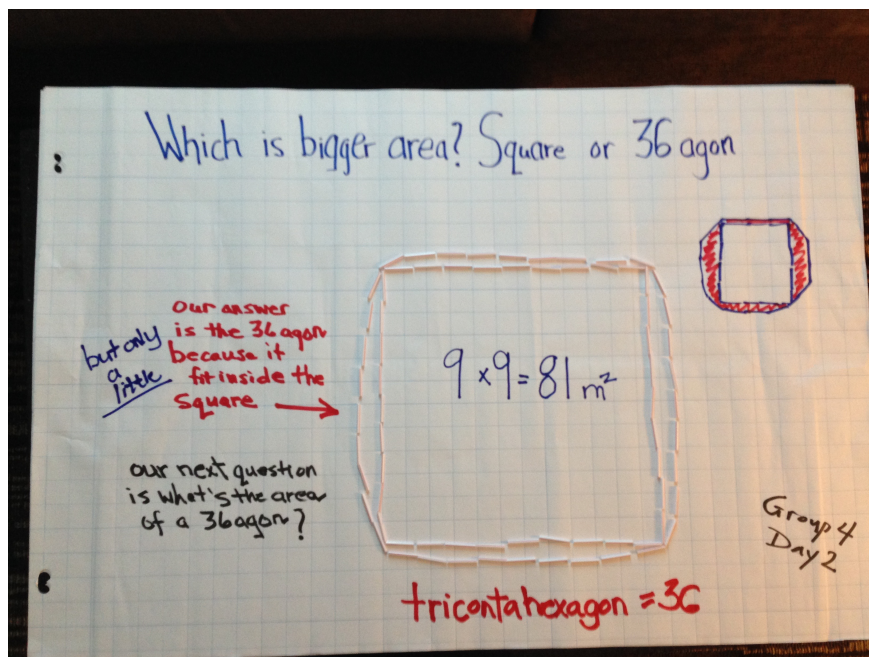 Which is bigger area? Square or 36 agon
our answer
is the 36 agon
because it
fit inside the
square
but only
a
little
9 x 9 = 81 m²
our next question
is what's the area
of a 36 agon?
Group 4
Day 2
tricontahexagon = 36